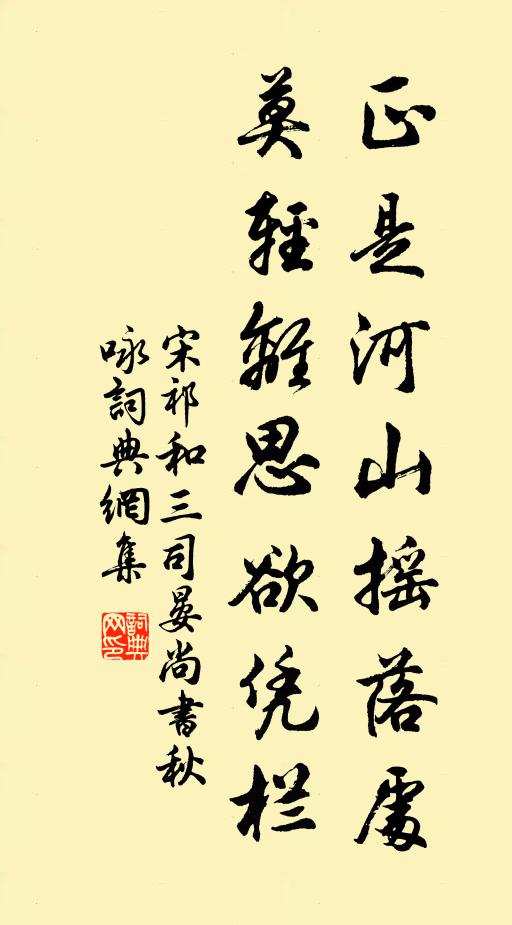 正是河山摇落處
莫輕離思欲凭栏
宋祁和三司晏尚書秋
咏詞典網集
詞典
网印